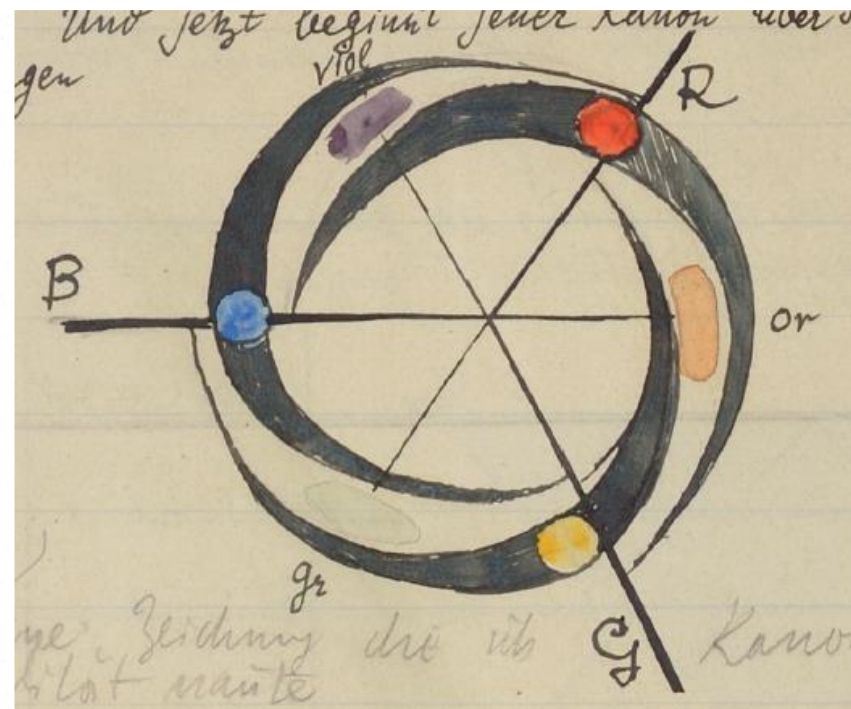 Und jetzt beginnt jener Kanon über
gen
viol
R
B
or
gr
G
Zeichnung die ich Kano